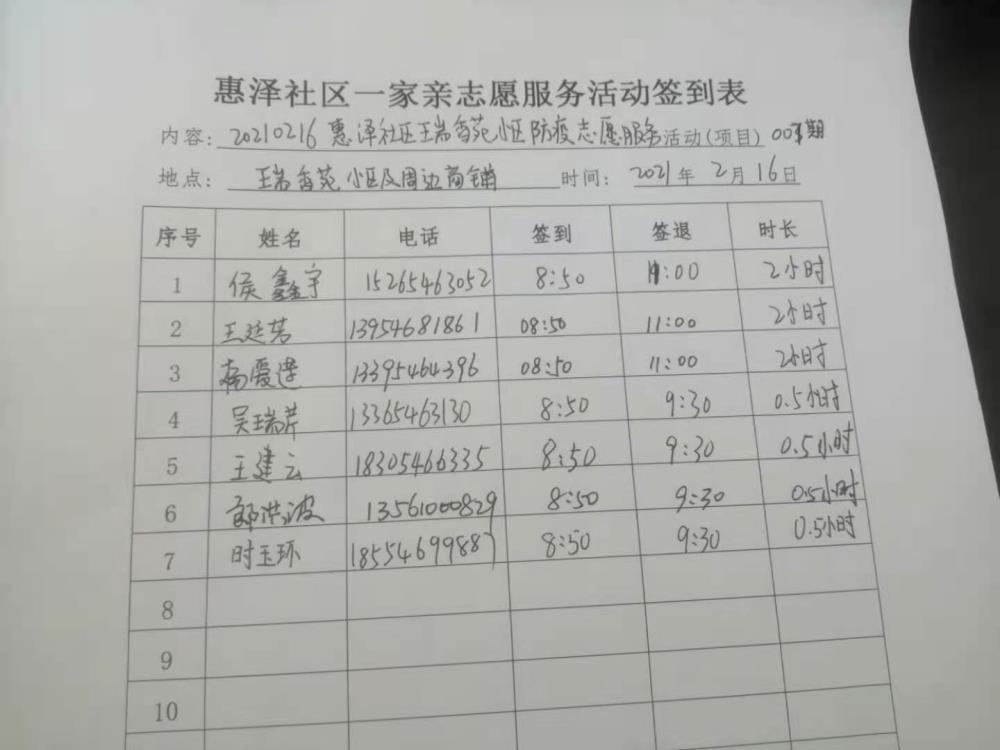 惠泽社区一家亲志愿服务活动签到表
内容：20210216惠泽社区王瑞香苑小区防疫志愿服务活动(项目)001期
地点：王瑞香苑小区及周边商铺 时间：2021年2月16日
序号 姓名 电话 签到 签退 时长
1 侯鑫宇 15265463052 8:50 11:00 2小时
2 王延芳 13954681861 08:50 11:00 2小时
3 霞莲 13395464396 08:50 11:00 2小时
4 吴瑞芹 13365463130 8:50 9:30 0.5小时
5 王建云 18305466335 8:50 9:30 0.5小时
6 洪波 13561000829 8:50 9:30 0.5小时
7 时玉环 18554699887 8:50 9:30 0.5小时
8
9
10